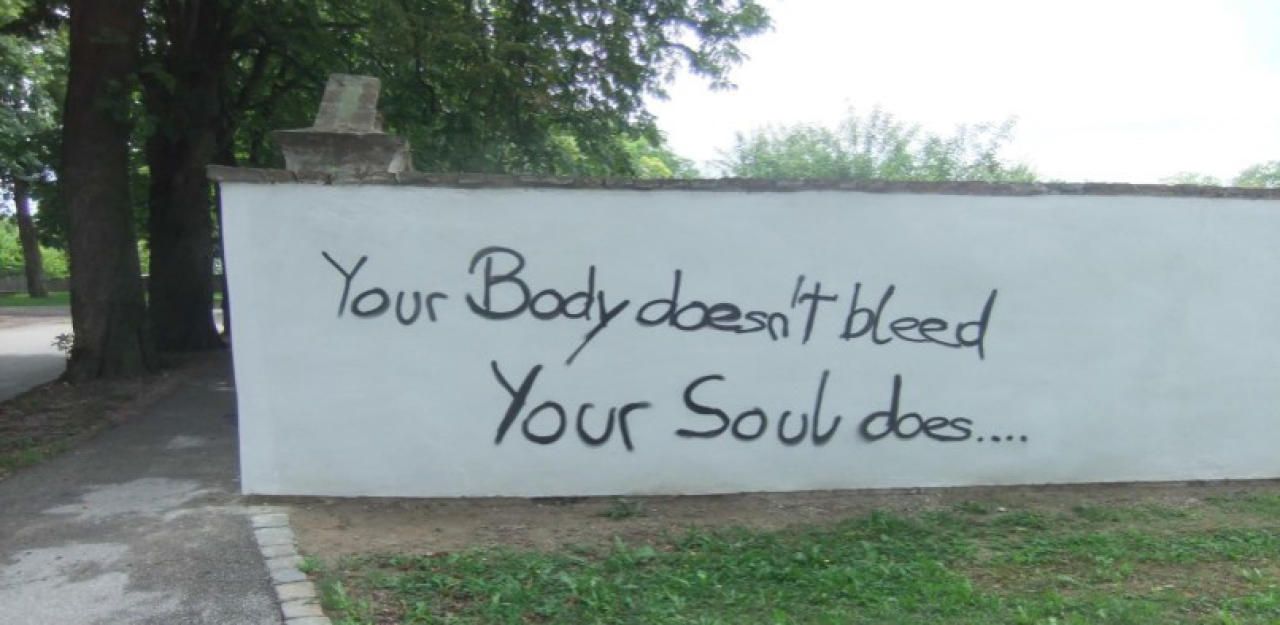 Your Body doesn't bleed
Your Soul does....